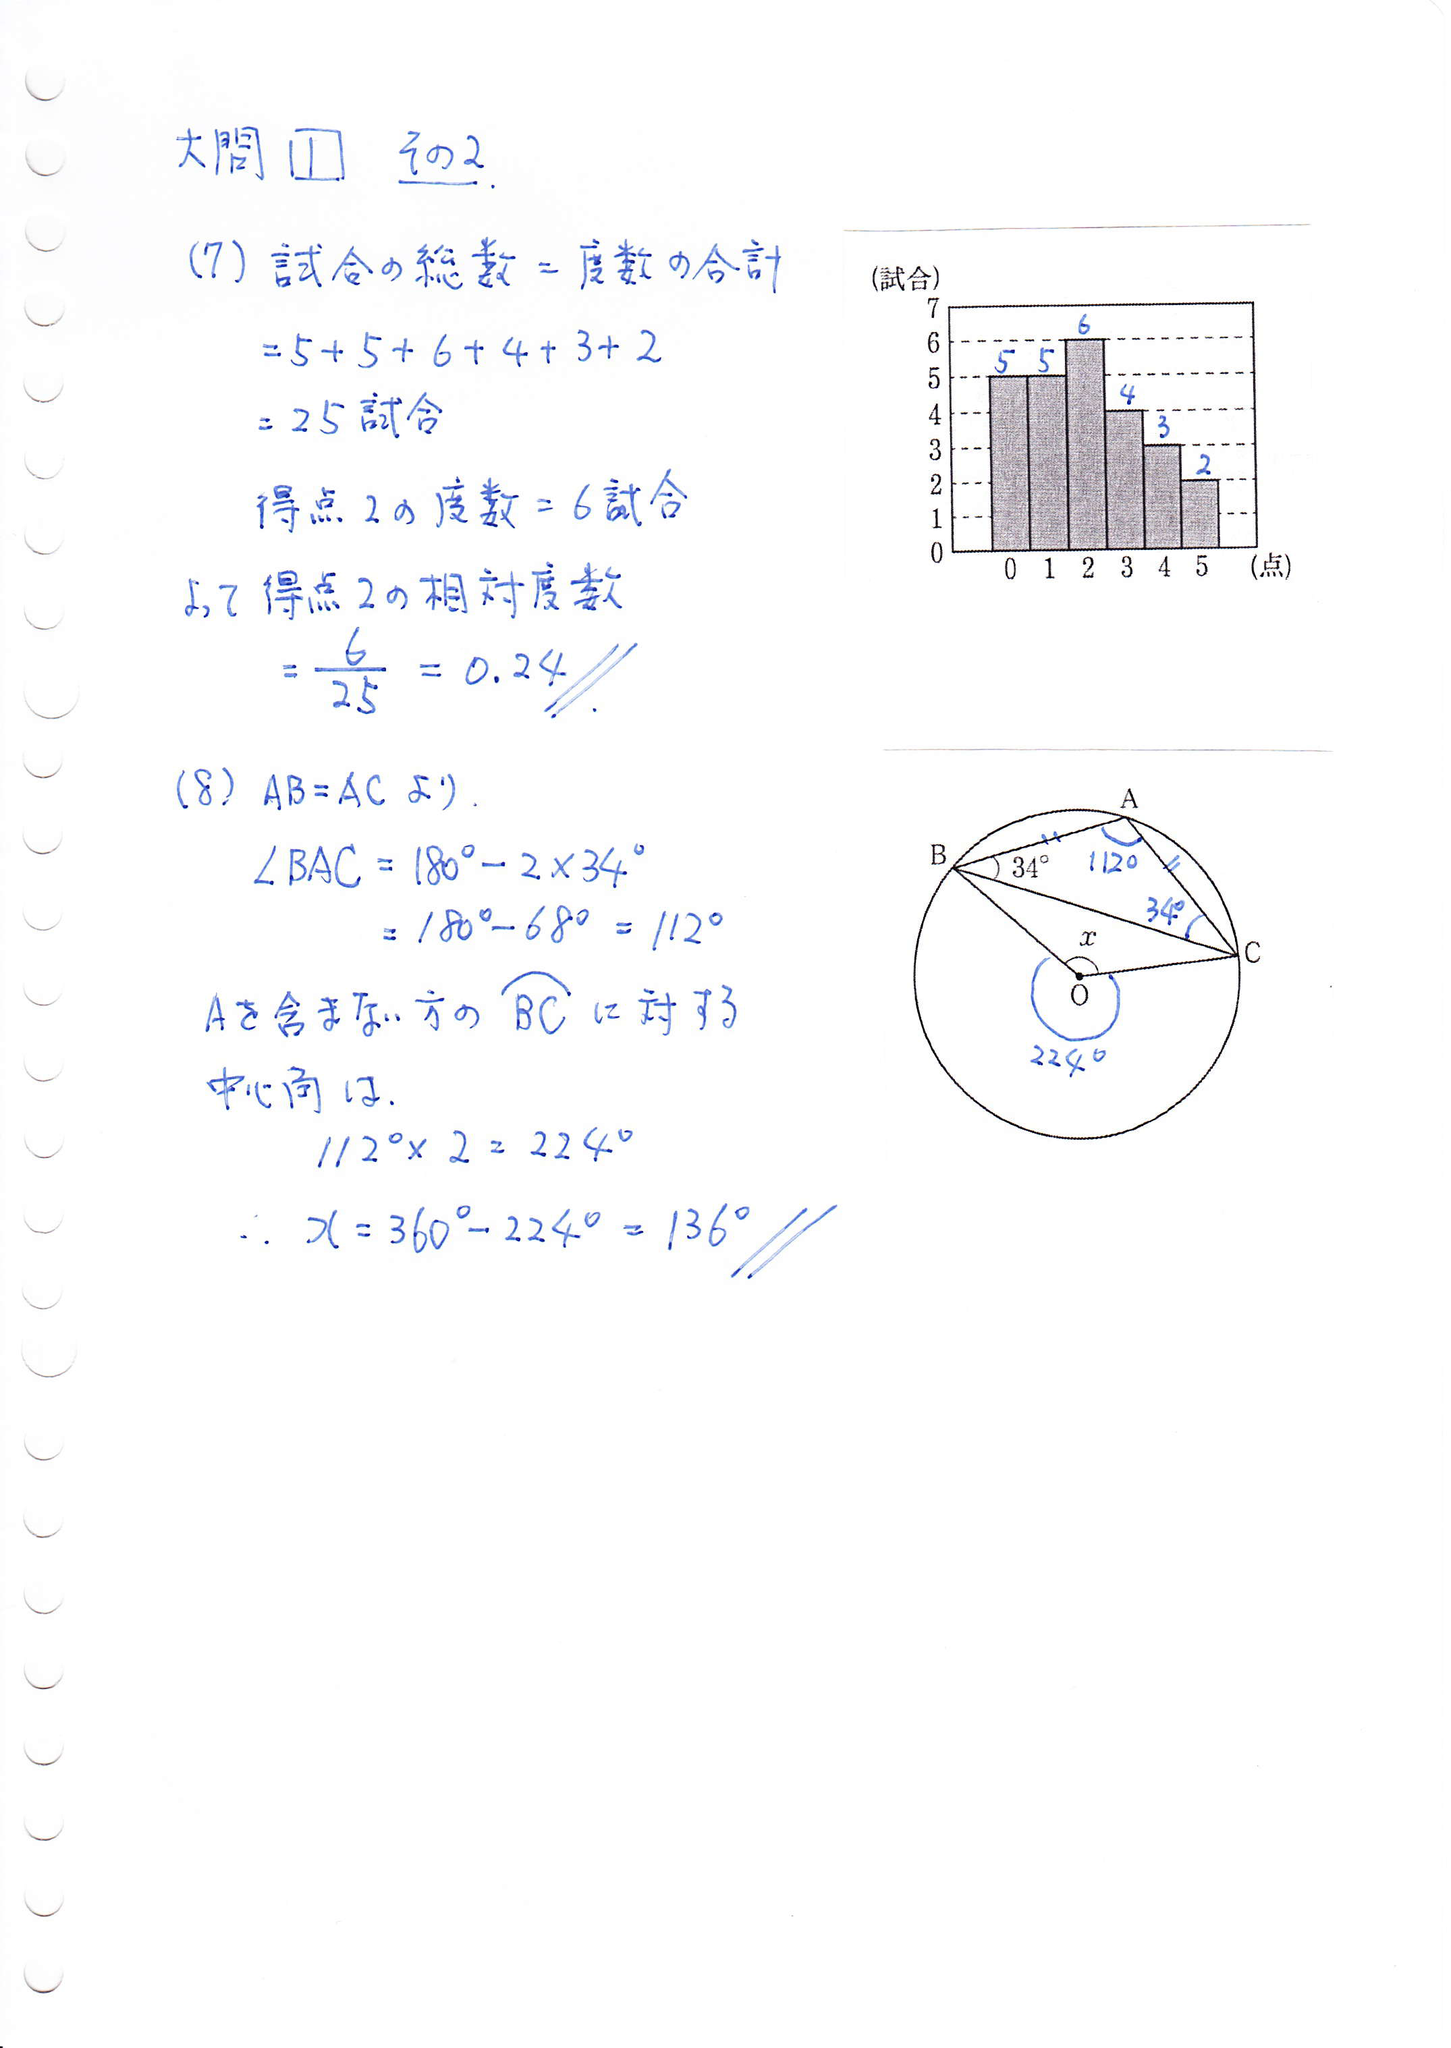 大問 1 その2.
(7) 試合の総数 = 度数の合計
= 5 + 5 + 6 + 4 + 3 + 2
= 25 試合
得点 2の度数 = 6 試合
よって 得点 2の相対度数
= 6/25 = 0.24
(試合)
7
6
5
4
3
2
1
0
5 5 6 4 3 2
0 1 2 3 4 5 (点)
(8) AB = AC より.
∠BAC = 180° - 2 × 34°
= 180° - 68° = 112°
Aを含まない方の BC に対する
中心角は.
112° × 2 = 224°
∴ x = 360° - 224° = 136°
A
B 34° 112°
34°
x C
O
224°